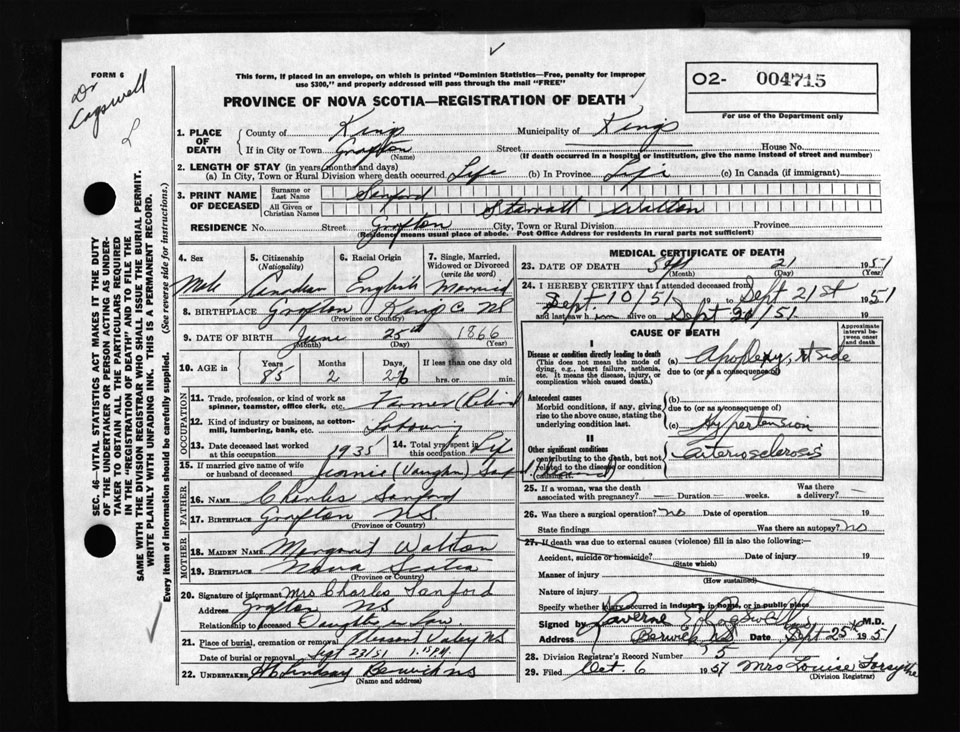 FORM 6
Dr
Cogswell
L
This form, if placed in an envelope, on which is printed "Dominion Statistics—Free, penalty for improper
use $300," and properly addressed will pass through the mail "FREE"
PROVINCE OF NOVA SCOTIA—REGISTRATION OF DEATH
O2- 004715
For use of the Department only
1. PLACE OF DEATH
County of Kings Municipality of Kings
If in City or Town Grafton (Name) Street House No.
(If death occurred in a hospital or institution, give the name instead of street and number)
2. LENGTH OF STAY (in years, months and days)
(a) In City, Town or Rural Division where death occurred Life (b) In Province Life (c) In Canada (if immigrant)
3. PRINT NAME OF DECEASED
Surname or Last Name Sanford
All Given or Christian Names Starratt Walton
RESIDENCE No. Street Grafton City, Town or Rural Division Province
(Residence means usual place of abode. Post Office Address for residents in rural parts not sufficient)
4. Sex Male
5. Citizenship (Nationality) Canadian
6. Racial Origin English
7. Single, Married, Widowed or Divorced (write the word) Married
8. BIRTHPLACE Grafton Kings Co NS
(Province or Country)
9. DATE OF BIRTH June 25th 1866
(Month) (Day) (Year)
10. AGE in Years 85 Months 2 Days 26 If less than one day old hrs. or min.
OCCUPATION
11. Trade, profession, or kind of work as spinner, teamster, office clerk, etc. Farmer (Retired)
12. Kind of industry or business, as cotton-mill, lumbering, bank, etc.
13. Date deceased last worked at this occupation 1935
14. Total yrs. spent in this occupation Life
15. If married give name of wife or husband of deceased (Vaughn) Sanford
FATHER
16. NAME Charles Sanford
17. BIRTHPLACE Grafton N.S.
(Province or Country)
MOTHER
18. MAIDEN NAME Margaret Walton
19. BIRTHPLACE Nova Scotia
(Province or Country)
20. Signature of informant Mrs Charles Sanford
Address Grafton NS
Relationship to deceased Daughter in Law
21. Place of burial, cremation or removal Pleasant Valley NS
Date of burial or removal Sept 23/51
22. UNDERTAKER Lindsay Berwick NS
(Name and address)
MEDICAL CERTIFICATE OF DEATH
23. DATE OF DEATH Sept 21 1951
(Month) (Day) (Year)
24. I HEREBY CERTIFY that I attended deceased from
Sept. 10/51 19 to Sept 21st 1951
and last saw him alive on Sept 20/51 19
CAUSE OF DEATH
Approximate interval between onset and death
I
Disease or condition directly leading to death
(This does not mean the mode of dying, e.g., heart failure, asthenia, etc. It means the disease, injury, or complication which caused death.)
(a) Apoplexy, rt side
due to (or as a consequence of)
Antecedent causes
Morbid conditions, if any, giving rise to the above cause, stating the underlying condition last.
(b)
due to (or as a consequence of)
(c) Hypertension
II
Other significant conditions
contributing to the death, but not related to the disease or condition causing it.
Arteriosclerosis
25. If a woman, was the death associated with pregnancy? — Duration — weeks. Was there a delivery? —
26. Was there a surgical operation? no Date of operation 19
State findings Was there an autopsy? no
27. If death was due to external causes (violence) fill in also the following:—
Accident, suicide or homicide? Date of injury 19
(State which)
Manner of injury
(How sustained)
Nature of injury
Specify whether injury occurred in industry, in home, or in public place
Signed by Laverne Cogswell M.D.
Address Berwick NS Date Sept 25th 1951
28. Division Registrar's Record Number 5
29. Filed Oct. 6 1951 Mrs Louise Forsythe
(Division Registrar)
SEC. 46—VITAL STATISTICS ACT MAKES IT THE DUTY
OF THE UNDERTAKER OR PERSON ACTING AS UNDER-
TAKER TO OBTAIN ALL THE PARTICULARS REQUIRED
IN THE "REGISTRATION OF DEATH" AND TO FILE THE
SAME WITH THE DIVISION REGISTRAR WHO SHALL ISSUE THE BURIAL PERMIT.
WRITE PLAINLY WITH UNFADING INK. THIS IS A PERMANENT RECORD.
Every item of information should be carefully supplied. (See reverse side for instructions.)